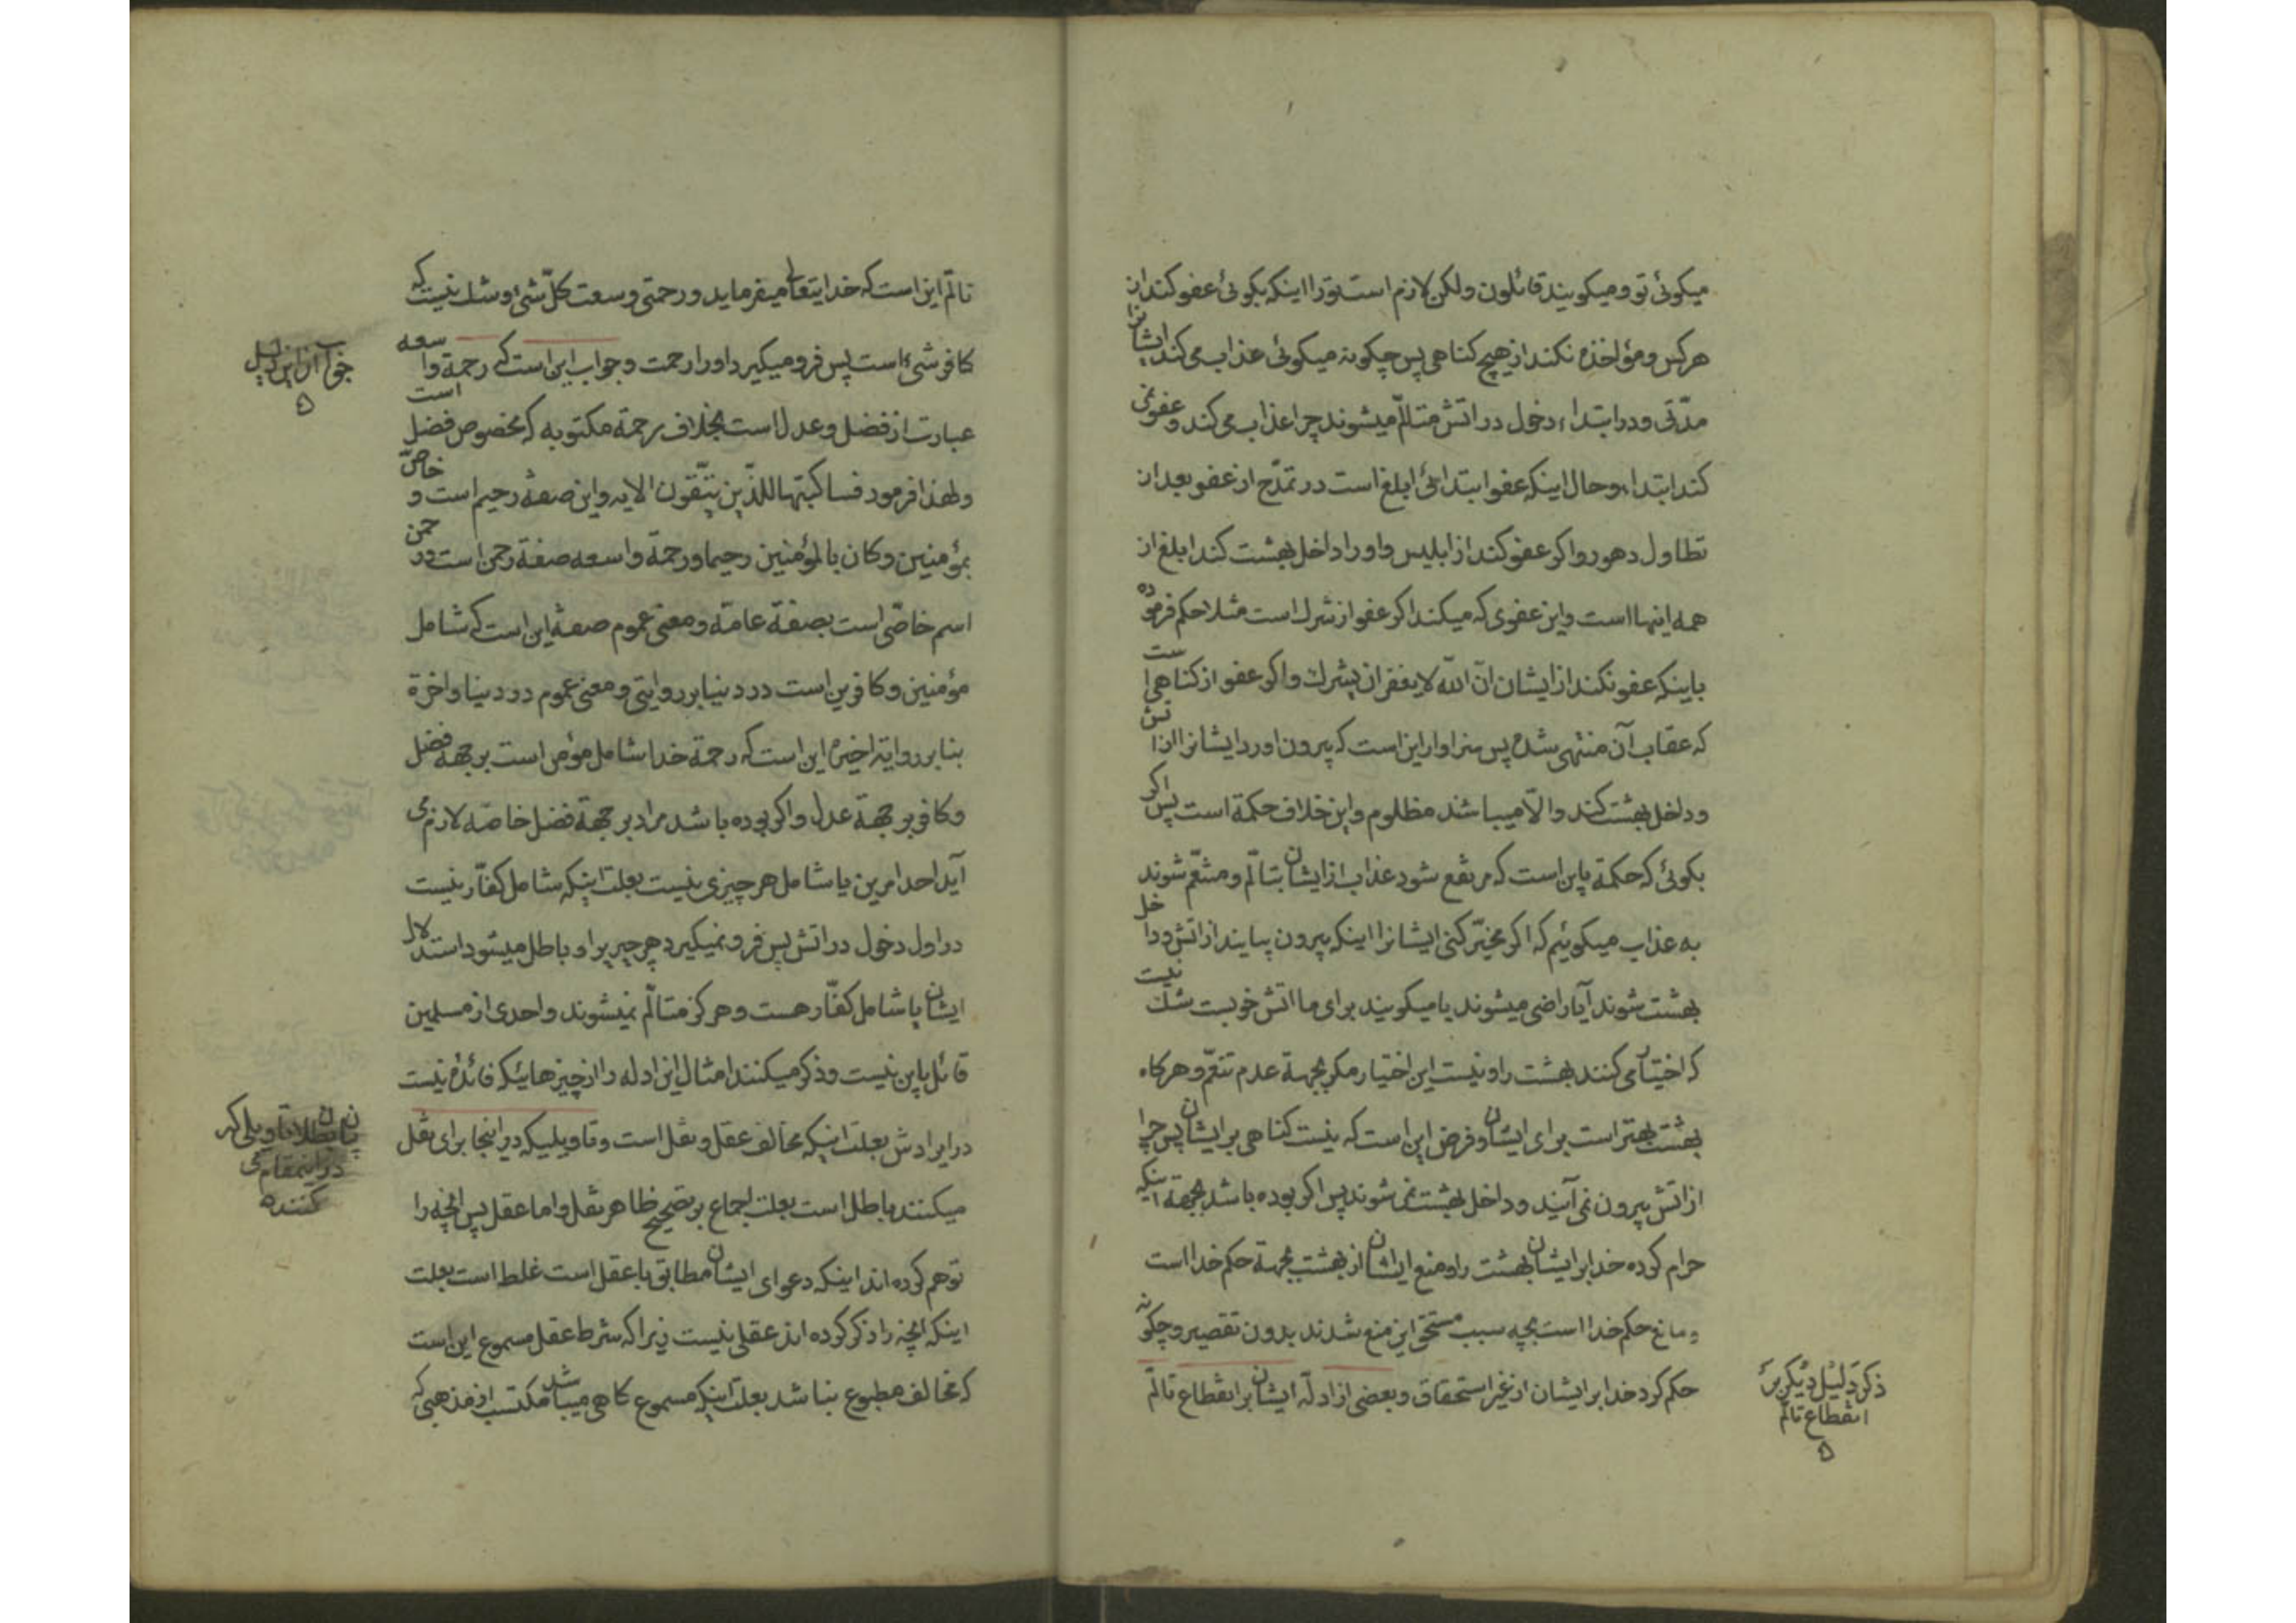 میکوئی تو و میکویند قائلون ولکن لازم است تو را اینکه بکوئی عفو کند از
هرکس و مؤاخذه نکند از هیچ کناهی پس چکونه میکوئی عذاب می کند ایشانرا
مدّتی و در ابتداء دخول در اتش متالّم میشوند چرا عذاب می کند و عفو نمی
کند ابتداء و حال اینکه عفو ابتدائی ابلغ است در تمدّح از عفو بعد از
تطاول دهور و اکر عفو کند از ابلیس و او را داخل بهشت کند ابلغ از
همه اینها است و این عفوی که میکند اکر عفو از شرك است مثلا حکم فرموده
باینکه عفو نکند از ایشان انّ الله لا یغفر ان یشرك و اکر عفو از کناهی است
که عقاب آن منتهی شده پس سزاوار این است که بیرون اورد ایشانرا از اتش
و داخل بهشت کند و الّا میباشند مظلوم و این خلاف حکمة است پس اکر
بکوئی که حکمة باین است که مرتفع شود عذاب از ایشان بتالّم و متنعّم شوند
به عذاب میکوئیم که اکر مخیّر کنی ایشانرا اینکه بیرون بیایند از اتش و داخل
بهشت شوند آیا راضی میشوند یا میکویند برای ما اتش خوبست شك نیست
که اختیار می کنند بهشت را و نیست این اختیار مکر بجهة عدم تنعّم و هرکاه
بهشت بهتر است برای ایشان و فرض این است که نیست کناهی بر ایشان پس چرا
از اتش بیرون نمی آیند و داخل بهشت نمی شوند پس اکر بوده باشد بجهة اینکه
حرام کرده خدا بر ایشان بهشت را و منع ایشان از بهشت بجهة حکم خدا است
و مانع حکم خدا است بچه سبب مستحق این منع شدند بدون تقصیر و چکونه
حکم کرد خدا بر ایشان از غیر استحقاق و بعضی از ادلّه ایشان بر انقطاع تالّم
ذکر دلیل دیکر بر
انقطاع تالّم
تالّم این است که خدایتعالی میفرماید و رحمتی وسعت کلّ شیء و شك نیست که
کافر شیء است پس فرو میکیرد او را رحمت و جواب این است که رحمة واسعه
عبارت از فضل و عدل است بخلاف رحمة مکتوبه که مخصوص فضل است
و لهذا فرمود فساکتبها للذّین یتّقون الایه و این صفة رحیم است و خاصّ
بمؤمنین و کان بالمؤمنین رحیما و رحمة واسعه صفة رحمن است و رحمن
اسم خاصّی است بصفة عامّة و معنی عموم صفة این است که شامل
مؤمنین و کافرین است در دنیا بر روایتی و معنی عموم در دنیا و اخرة
بنابر روایة اخیره این است که رحمة خدا شامل مؤمن است بر جهة فضل
و کافر بر جهة عدل و اکر بوده باشد مراد بر جهة فضل خاصّه لازم می
آید احد امرین یا شامل هر چیزی نیست بعلت اینکه شامل کفّار نیست
در اول دخول در اتش پس فرو نمیکیرد هر چیز را و باطل میشود استدلال
ایشان یا شامل کفّار هست و هرکز متالّم نمیشوند و احدی از مسلمین
قائل باین نیست و ذکر میکنند امثال این ادله را از چیزهائیکه فائده نیست
در ایرادش بعلت اینکه مخالف عقل و نقل است و تاویلیکه در اینجا برای نقل
میکنند باطل است بعلت اجماع بر تصحیح ظاهر نقل و اما عقل پس انچه را
توهم کرده اند اینکه دعوای ایشان مطابق با عقل است غلط است بعلت
اینکه انچه را ذکر کرده اند عقلی نیست زیرا که شرط عقل مسموع این است
که مخالف مطبوع نباشد بعلت اینکه مسموع کاهی میباشد مکتسب از مذهبی که
جواب از این دلیل
بیان بطلان تاویلی که
در اینمقام می
کنند